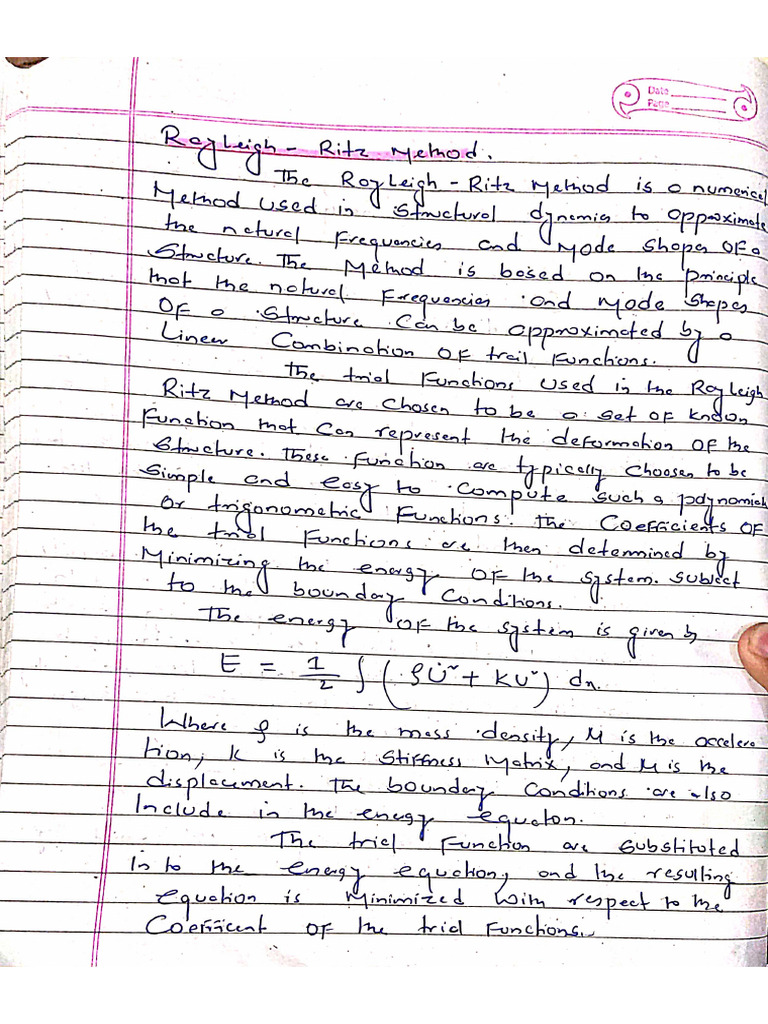 Date
Page
Rayleigh - Ritz Method.
The Rayleigh - Ritz Method is a numerical
Method used in structural dynamics to approximate
the natural Frequencies and Mode Shapes OF a
Structure. The Method is based on the principle
that the natural Frequencies and Mode Shapes
OF a Structure Can be approximated by a
Linear Combination OF trail Functions.
The trial Functions used in the Rayleigh
Ritz Method are chosen to be a set OF known
Function that can represent the deformation OF the
Structure. These Function are typically choosen to be
Simple and easy to compute such a polynomial
or trigonometric Functions. The Coefficients OF
the trial Functions are then determined by
Minimizing the energy OF the system. Subject
to the boundary Conditions.
The energy OF the system is given by
E = 1/2 ∫ (ρU̇² + KU²) dx.
Where ρ is the mass density, U is the accelera
tion, K is the Stiffness Matrix, and U is the
displacement. The boundary Conditions are also
Include in the energy equaton.
The trial Function are Substituted
In to the energy equation, and the resulting
equation is Minimized With respect to the
Coefficent OF the trial Functions.